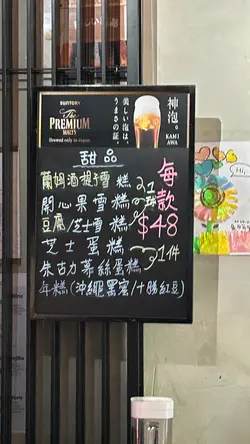 SUNTORY
The
PREMIUM
MALT'S
Brewed only in Japan
美しい泡は、
うまさの証。
神泡。
KAMI
AWA
甜品
蘭姆酒提子雪糕
開心果雪糕
豆腐/芝士雪糕
芝士蛋糕
朱古力慕絲蛋糕
年糕(沖繩黑蜜/十勝紅豆)
21球
1件
每款
$48